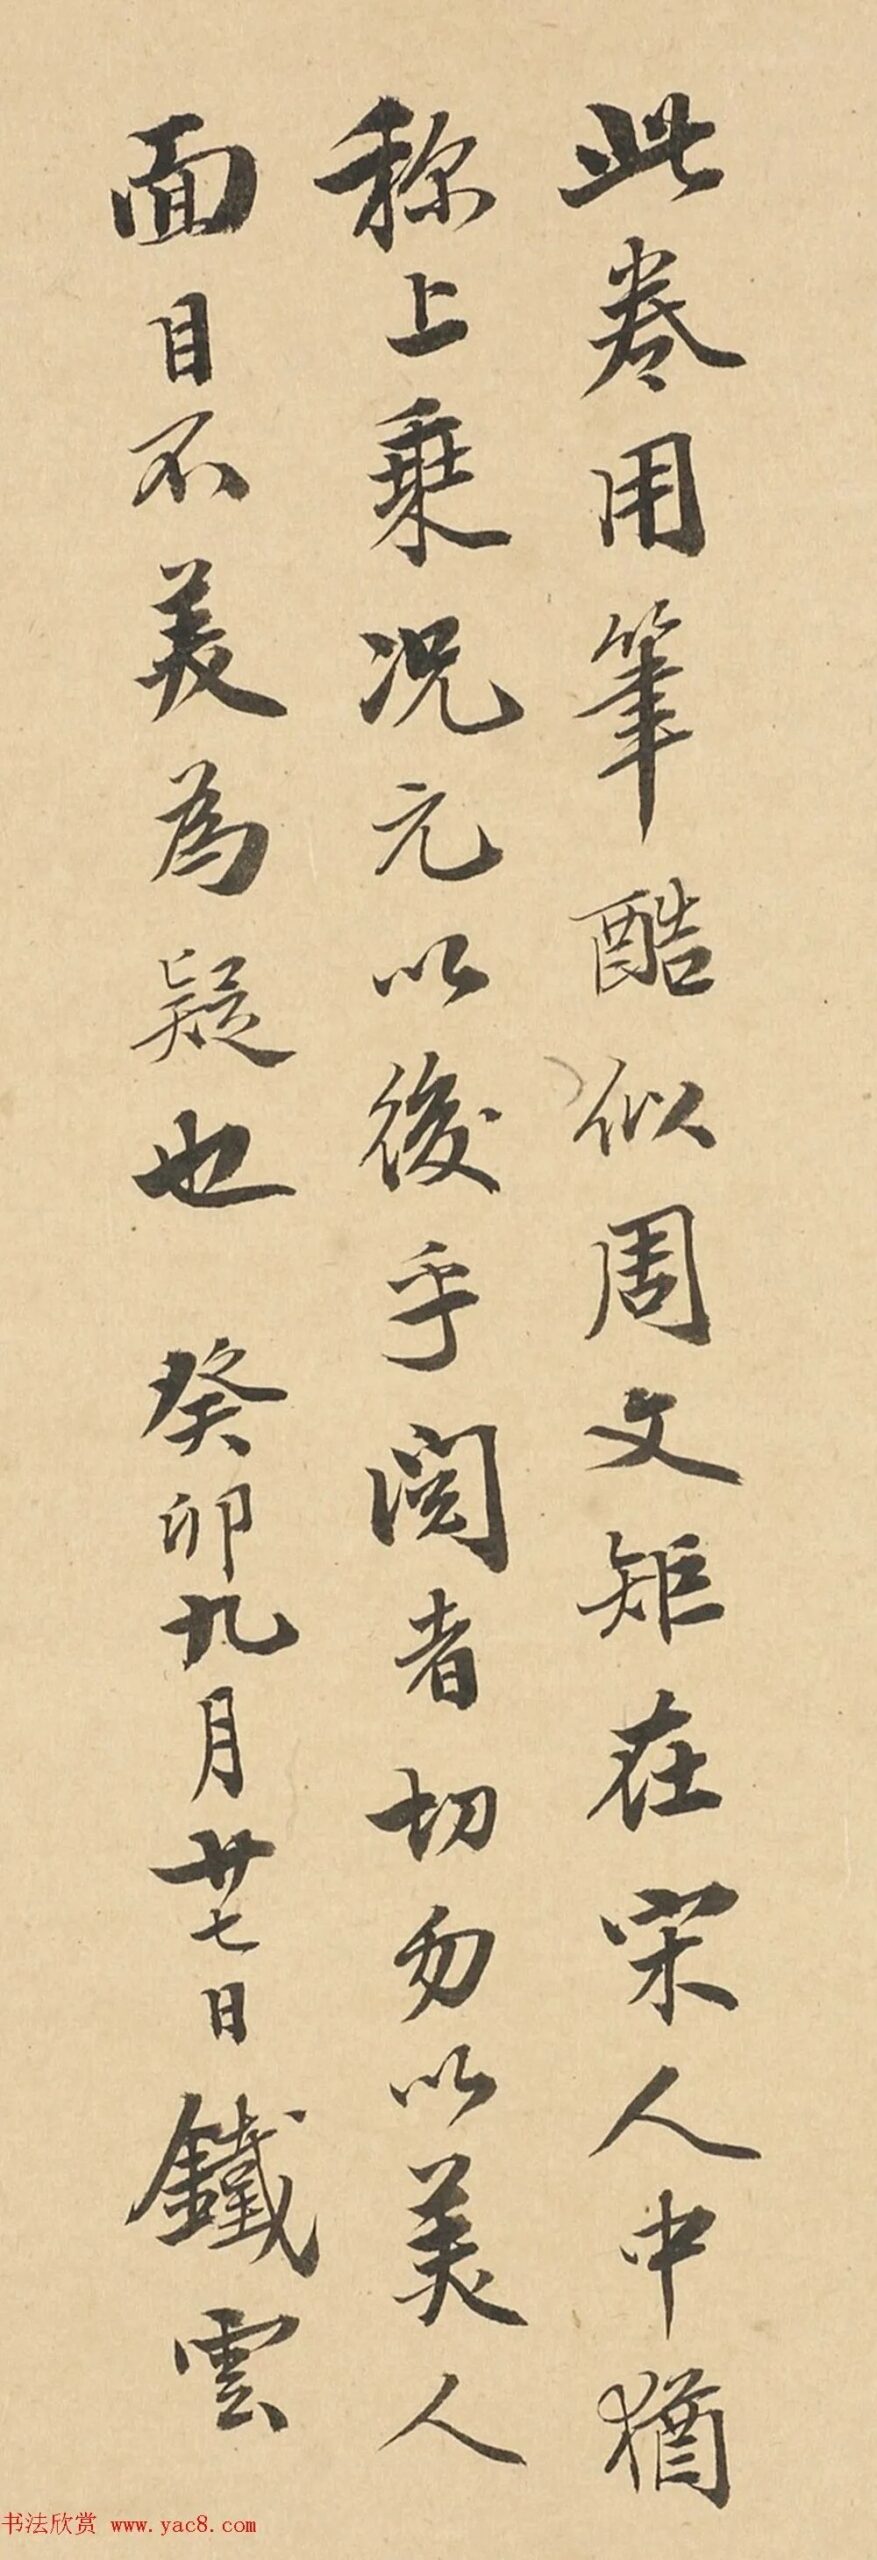 此卷用筆酷似周文矩在宋人中猶
称上乗况元以後乎閲者切勿以美人
面目不美為疑也 癸卯九月廿七日鐵雲
书法欣赏 www.yac8.com